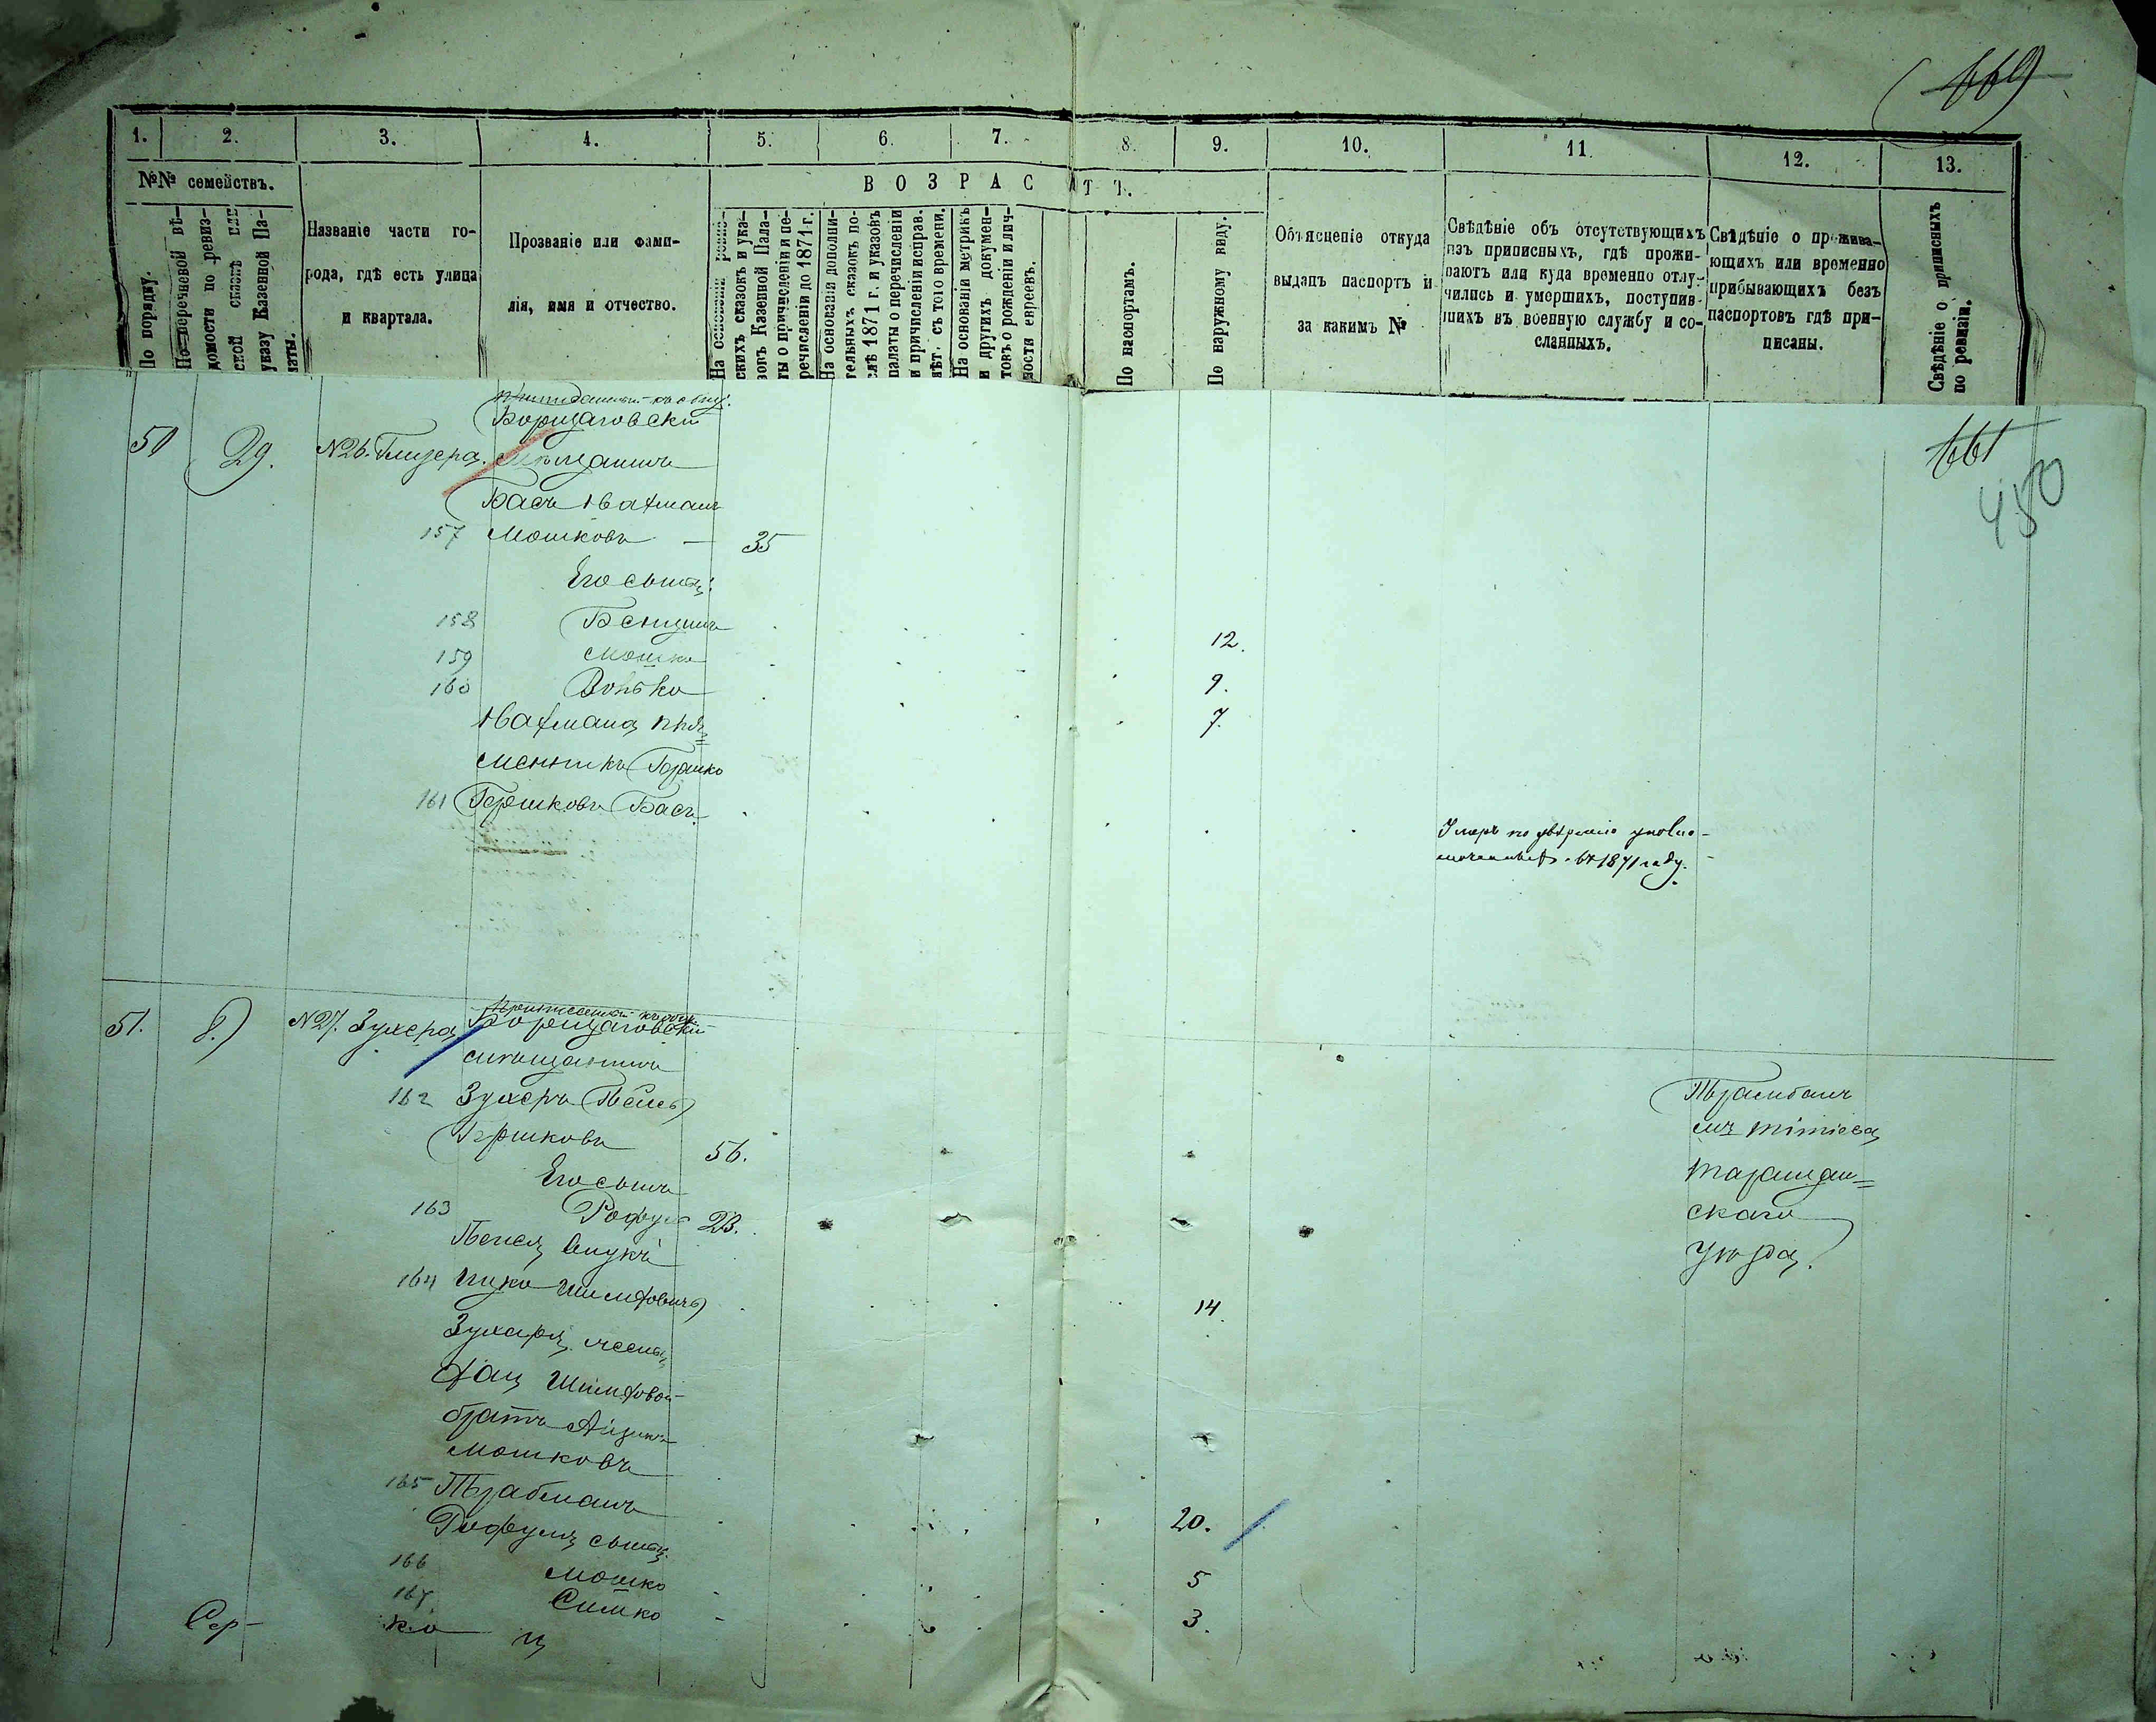 669
1. 2. 3. 4. 5. 6. 7. 8. 9. 10. 11. 12. 13.
№№ семействъ.
В О З Р А С Т Ъ.
По порядку.
По перечневой вѣ-
домости по ревиз-
ской сказкѣ или
указу Казенной Па-
латы.
Названіе части го-
рода, гдѣ есть улица
и квартала.
Прозваніе или фами-
лія, имя и отчество.
На основаніи ревиз-
скихъ сказокъ и ука-
зовъ Казенной Пала-
ты о причисленіи и пе-
речисленіи до 1871 г.
На основаніи дополни-
тельныхъ сказокъ по-
слѣ 1871 г. и указовъ
палаты о перечисленіи
и причисленіи исправ.
лѣт. съ того времени.
На основаніи метрикъ
и другихъ докумен-
товъ о рожденіи и лич-
ности евреевъ.
По паспортамъ.
По наружному виду.
Объясненіе откуда
выданъ паспортъ и
за какимъ №
Свѣдѣніе объ отсутствующихъ
изъ приписныхъ, гдѣ прожи-
ваютъ или куда временно отлу-
чились и умершихъ, поступив-
шихъ въ военную службу и со-
сланныхъ.
Свѣдѣніе о прожива-
ющихъ или временно
прибывающихъ безъ
паспортовъ гдѣ при-
писаны.
Свѣдѣніе о приписныхъ
по ревизіи.
661
450
Борщаговскій
50 29. №26. Глизера. мѣщанинъ
Басъ
157 Мошковъ — 35
Его сыны:
158 12.
159 Мошко 9.
160 Волько 7.
пле=
менникъ Гершко
161 Гершковъ Басъ.
Умеръ по увѣренію уполно-
моченныхъ въ 1871 году.
51. 8) №27. Зухера Борщаговскій
мѣщанинъ
162 Зухеръ
Гершковъ 56.
Его сынъ
163 Рофуль 23.
внукъ
164 Ицко 14.
Зухера
братъ Айзикъ
Мошковъ
165 20.
Рофуля сыны
166 Мошко 5
167 Симко 3.
изъ Тітіева
Таращан=
скаго
Уѣзда.